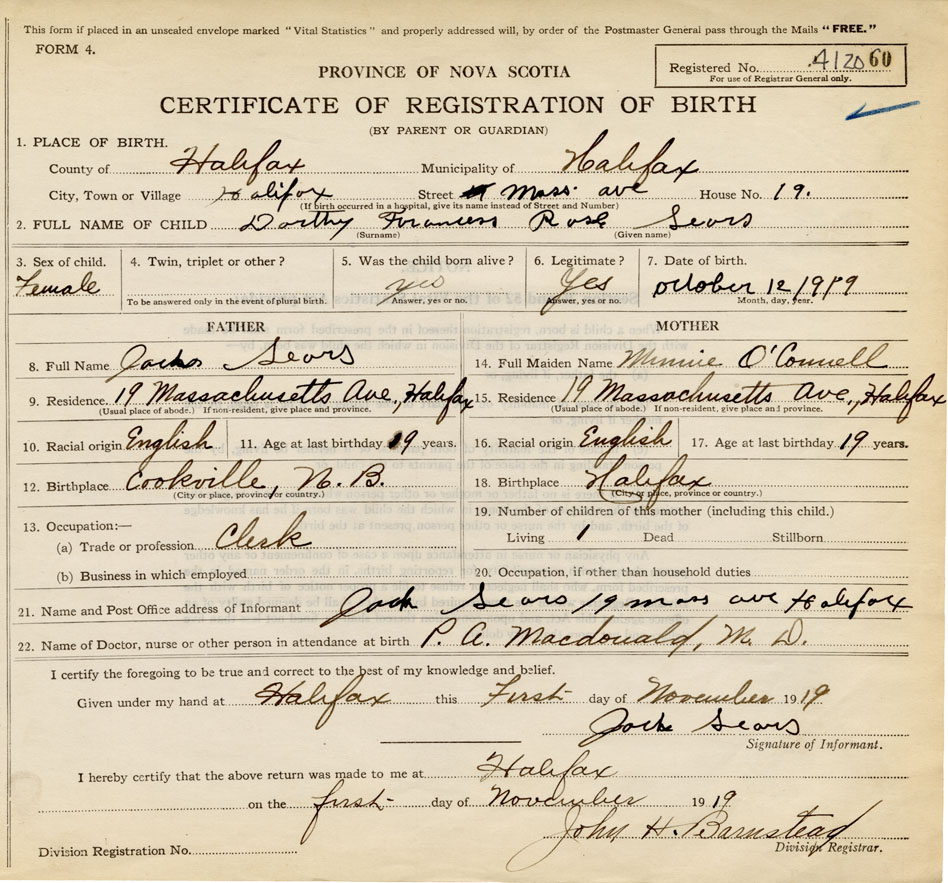 This form if placed in an unsealed envelope marked "Vital Statistics" and properly addressed will, by order of the Postmaster General pass through the Mails "FREE."
FORM 4.
Registered No. 412060
For use of Registrar General only.
PROVINCE OF NOVA SCOTIA
CERTIFICATE OF REGISTRATION OF BIRTH
(BY PARENT OR GUARDIAN)
1. PLACE OF BIRTH.
County of Halifax Municipality of Halifax
City, Town or Village Halifax Street Mass. ave House No. 19.
(If birth occurred in a hospital, give its name instead of Street and Number)
2. FULL NAME OF CHILD Dorthy Francess Rose Sears
(Surname) (Given name)
3. Sex of child. 4. Twin, triplet or other? 5. Was the child born alive? 6. Legitimate? 7. Date of birth.
Female yes Yes October 12 1919
To be answered only in the event of plural birth. Answer, yes or no. Answer, yes or no. Month, day, year.
FATHER MOTHER
8. Full Name Jack Sears 14. Full Maiden Name Minnie O'Connell
9. Residence. 19 Massachusetts Ave., Halifax 15. Residence 19 Massachusetts Ave., Halifax
(Usual place of abode.) If non-resident, give place and province. (Usual place of abode.) If non-resident, give place and province.
10. Racial origin English 11. Age at last birthday 19 years. 16. Racial origin English 17. Age at last birthday 19 years.
12. Birthplace Cookville, N. B. 18. Birthplace Halifax
(City or place, province or country.) (City or place, province or country.)
13. Occupation:— 19. Number of children of this mother (including this child.)
(a) Trade or profession Clerk Living 1 Dead Stillborn
(b) Business in which employed 20. Occupation, if other than household duties
21. Name and Post Office address of Informant Jack Sears 19 mass ave Halifax
22. Name of Doctor, nurse or other person in attendance at birth P. A. Macdonald, M. D.
I certify the foregoing to be true and correct to the best of my knowledge and belief.
Given under my hand at Halifax this First day of November 1919
Jack Sears
Signature of Informant.
I hereby certify that the above return was made to me at Halifax
on the first day of November 1919
John H. Barnstead
Division Registration No. Division Registrar.